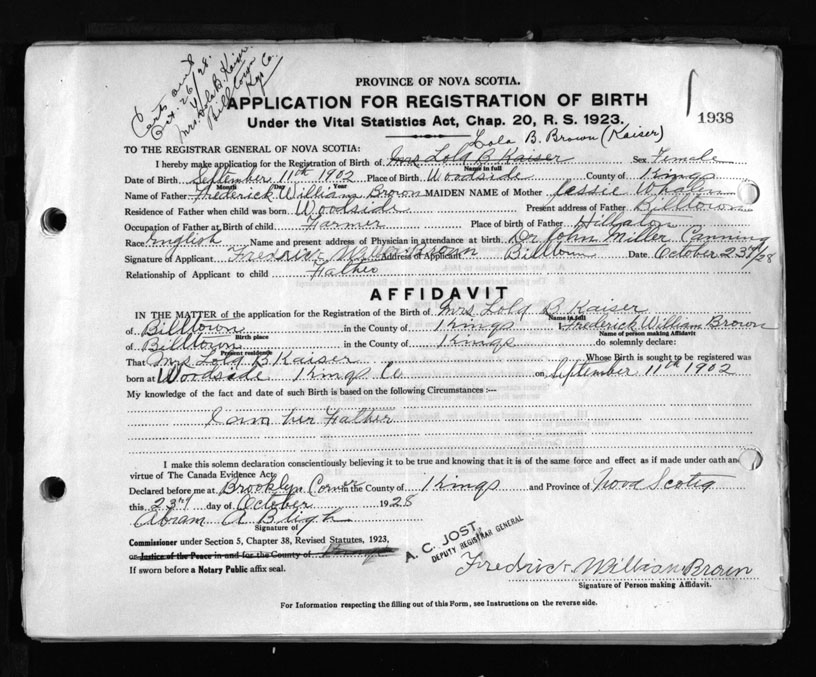 Certs sent
Oct. 26/28.
Mrs. Lola B. Kaiser
Billtown
Kgs Co.
PROVINCE OF NOVA SCOTIA.
APPLICATION FOR REGISTRATION OF BIRTH
Under the Vital Statistics Act, Chap. 20, R. S. 1923.
1938
Lola B. Brown (Kaiser)
TO THE REGISTRAR GENERAL OF NOVA SCOTIA:
I hereby make application for the Registration of Birth of Mrs Lola B Kaiser Sex Female
Name in full
Date of Birth September 11th 1902 Place of Birth Woodside County of Kings
Month Day Year
Name of Father Frederick William Brown MAIDEN NAME of Mother Jessie Whalen
Residence of Father when child was born Woodside Present address of Father Billtown
Occupation of Father at Birth of child Farmer Place of birth of Father Hillaton
Race English Name and present address of Physician in attendance at birth Dr John Miller Canning
Signature of Applicant Fredrick William Brown Address of Applicant Billtown Date October 23rd/28
Relationship of Applicant to child Father
AFFIDAVIT
IN THE MATTER of the application for the Registration of the Birth of Mrs Lola B Kaiser
Name in full
of Billtown in the County of Kings I Frederick William Brown
Birth place Name of person making Affidavit
of Billtown in the County of Kings do solemnly declare:
Present residence
That Mrs Lola B Kaiser Whose Birth is sought to be registered was
born at Woodside Kings Co on September 11th 1902
My knowledge of the fact and date of such Birth is based on the following Circumstances :—
I am her Father
I make this solemn declaration conscientiously believing it to be true and knowing that it is of the same force and effect as if made under oath and
virtue of The Canada Evidence Act.
Declared before me at Brooklyn Corner in the County of Kings and Province of Nova Scotia
this 23rd day of October 1928
Abram A Bligh
Signature of
Commissioner under Section 5, Chapter 38, Revised Statutes, 1923,
or Justice of the Peace in and for the County of Kings
If sworn before a Notary Public affix seal.
A. C. JOST,
DEPUTY REGISTRAR GENERAL
Fredrick William Brown
Signature of Person making Affidavit.
For Information respecting the filling out of this Form, see Instructions on the reverse side.